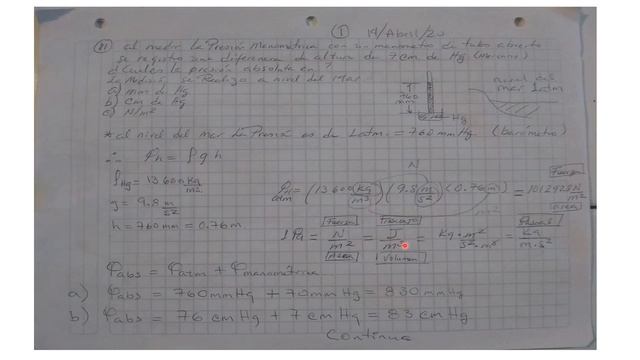 I 14/Abril/20
11) al medir la Presión Manométrica con un manómetro de tubo abierto
se registra una diferencia de altura de 7cm de Hg (Mercurio)
calcular la presión absoluta en?
la Medición se Realizo a nivel del Mar.
a) mm de Hg
b) cm de Hg
c) N/m²
760 mm
Hg
nivel del
mar 1 atm
* al nivel del mar la Presión es de 1 atm. = 760 mm Hg. (barómetro)
∴ Ph = ρ g h
ρHg = 13600 Kg/m³
g = 9.8 m/s²
h = 760 mm = 0.76 m.
N
Ph atm = (13 600 Kg/m³)(9.8 m/s²)(0.76 m) = 101292.8 N/m²
Fuerza
area
m²
Fuerza Trabajo
1 Pa = N/m² = J/m³ = Kg·m²/s²·m³ = Kg/m·s²
Area Volumen
Pabs = Patm + Pmanométrica
a) Pabs = 760 mm Hg + 70 mm Hg = 830 mm Hg
b) Pabs = 76 cm Hg + 7 cm Hg = 83 cm Hg
Continua